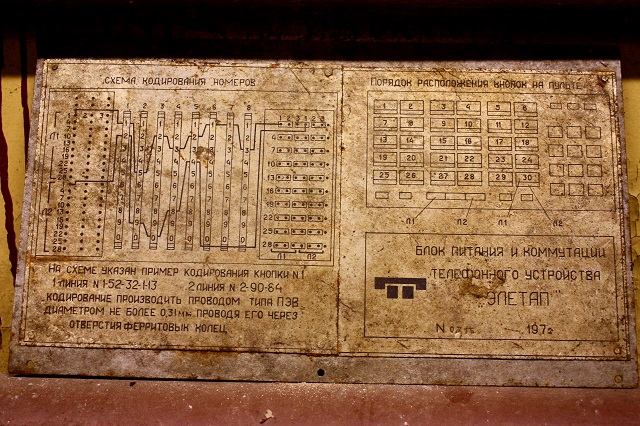 СХЕМА КОДИРОВАНИЯ НОМЕРОВ
1 2 3 4 5 6 7 8
Л1
Л2
1 2 3
1
4
7
10
13
16
19
22
25
28
Л1 Л2
НА СХЕМЕ УКАЗАН ПРИМЕР КОДИРОВАНИЯ КНОПКИ N1
1 ЛИНИЯ N 1-52-32-1-13 2 ЛИНИЯ N 2-90-64
КОДИРОВАНИЕ ПРОИЗВОДИТЬ ПРОВОДОМ ТИПА ПЭВ
ДИАМЕТРОМ НЕ БОЛЕЕ 0,31мм ПРОВОДЯ ЕГО ЧЕРЕЗ
ОТВЕРСТИЯ ФЕРРИТОВЫХ КОЛЕЦ
ПОРЯДОК РАСПОЛОЖЕНИЯ КНОПОК НА ПУЛЬТЕ
1 2 3 4 5 6
7 8 9 10 11 12
13 14 15 16 17 18
19 20 21 22 23 24
25 26 27 28 29 30
Л1 Л2 Л1 Л2
БЛОК ПИТАНИЯ И КОММУТАЦИИ
ТЕЛЕФОННОГО УСТРОЙСТВА
"ЭЛЕТАП"
N 197